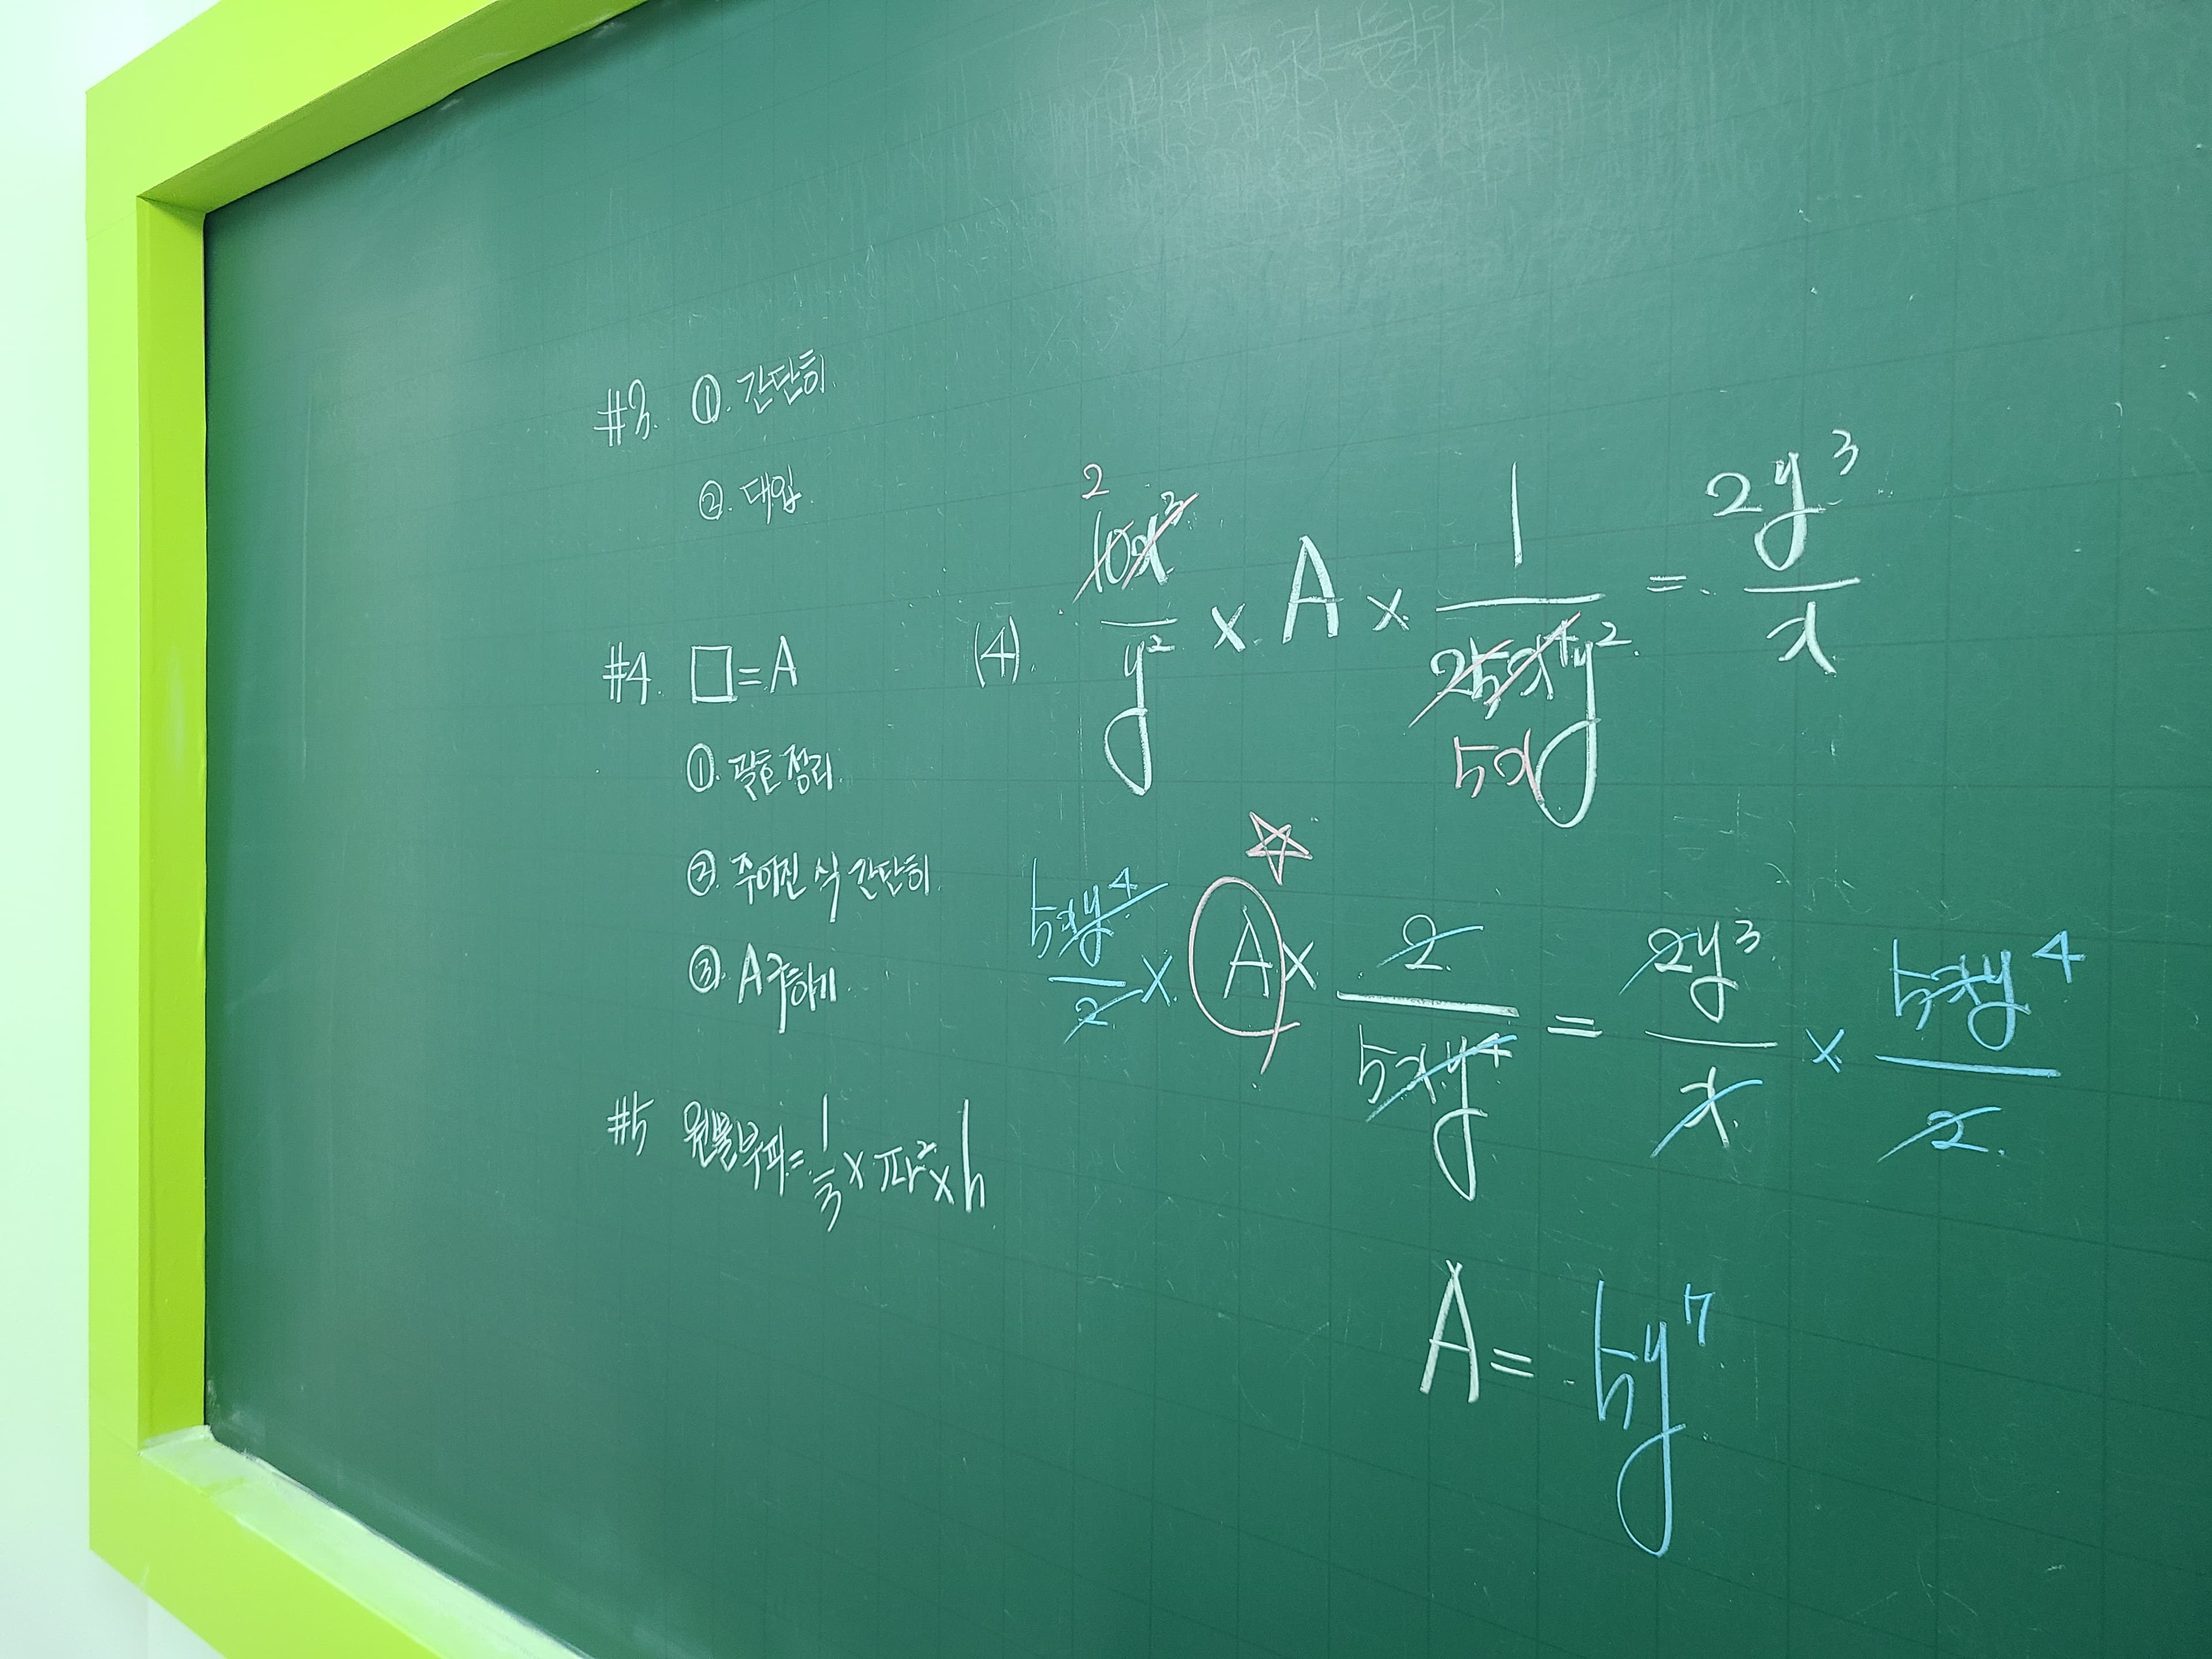 #3. ①. 간단히
②. 대입.
#4. □=A
①. 괄호 정리.
②. 주어진 식 간단히.
③. A구하기.
#5 원뿔부피= 1/3 × πr² × h
2
(4). 10x³/y² × A × 1/25x⁴y² = 2y³/x
5x
5xy⁴/2 × A × 2/5xy⁴ = 2y³/x × 5xy⁴/2
A = 5y⁷